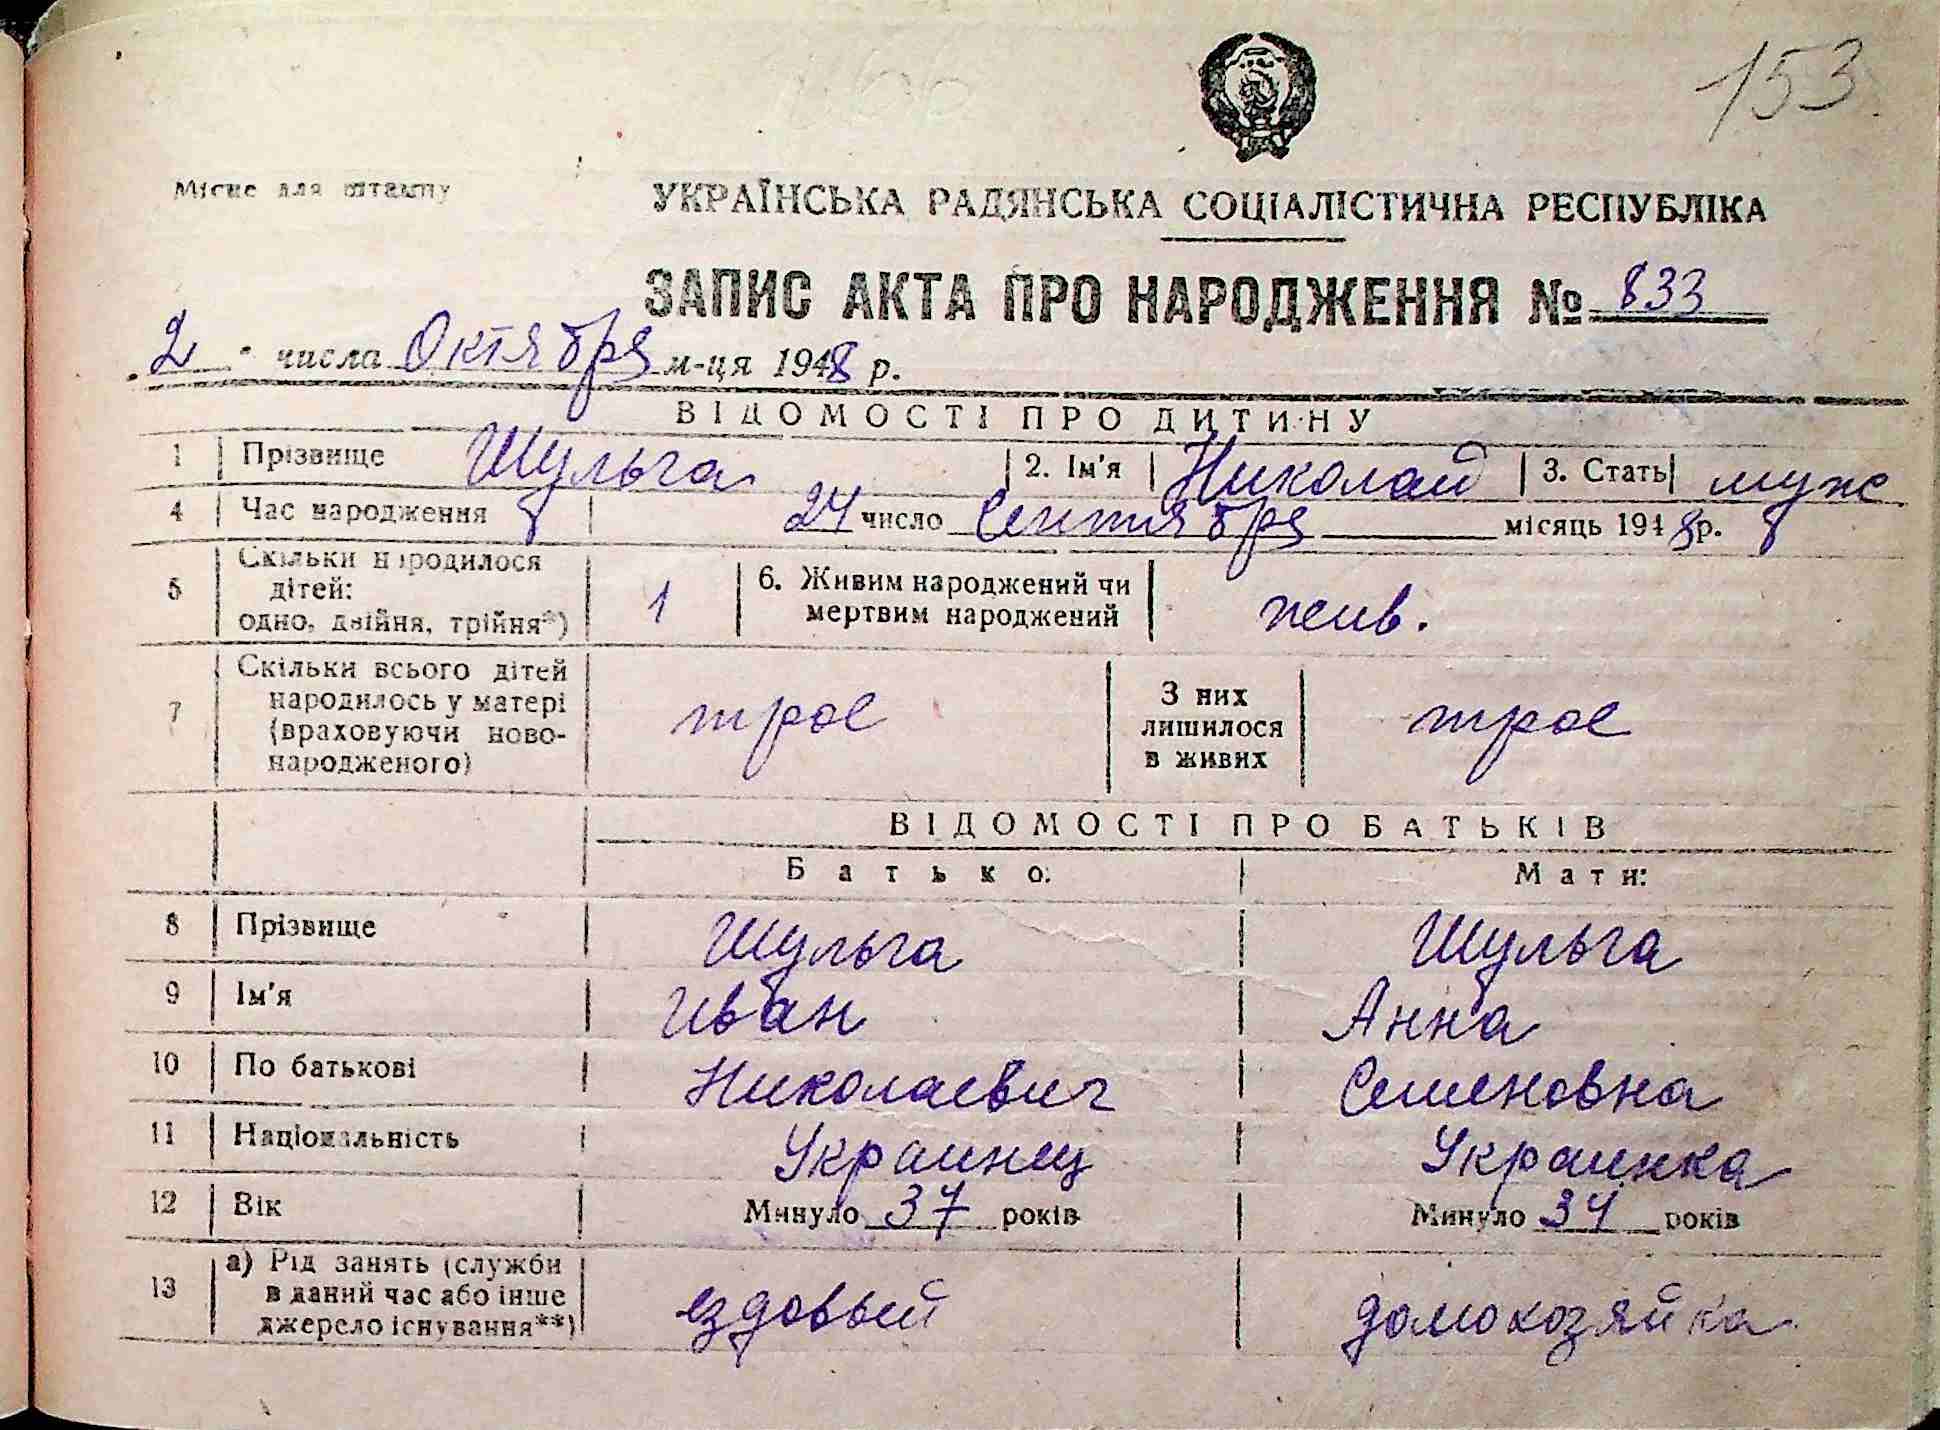 153
Місце для штампу
УКРАЇНСЬКА РАДЯНСЬКА СОЦІАЛІСТИЧНА РЕСПУБЛІКА
ЗАПИС АКТА ПРО НАРОДЖЕННЯ № 833
2 числа Октября м-ця 1948 р.
ВІДОМОСТІ ПРО ДИТИНУ
1 Прізвище Шульга 2. Ім'я Николай 3. Стать муж
4 Час народження 24 число Сентября місяць 1948 р.
5 Скільки народилося
дітей:
одно, двійня, трійня*) 1
6. Живим народжений чи
мертвим народжений жив.
7 Скільки всього дітей
народилось у матері
(враховуючи ново-
народженого) трое
З них
лишилося
в живих трое
ВІДОМОСТІ ПРО БАТЬКІВ
Батько: Мати:
8 Прізвище Шульга Шульга
9 Ім'я Иван Анна
10 По батькові Николаевич Семеновна
11 Національність Украинец Украинка
12 Вік Минуло 37 років Минуло 34 років
13 а) Рід занять (служби
в даний час або інше
джерело існування**) ездовый домохозяйка